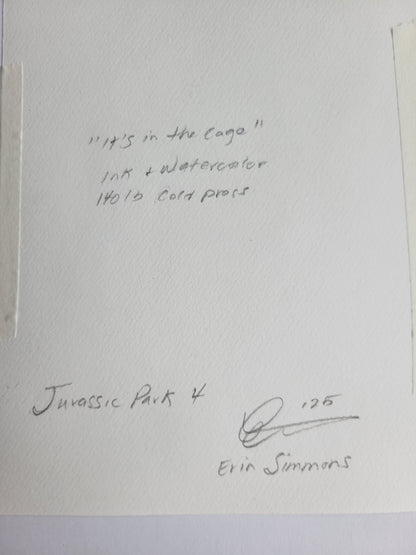 "It's in the cage"
Ink + Watercolor
140 lb Cold press
Jurassic Park 4
'25
Erin Simmons